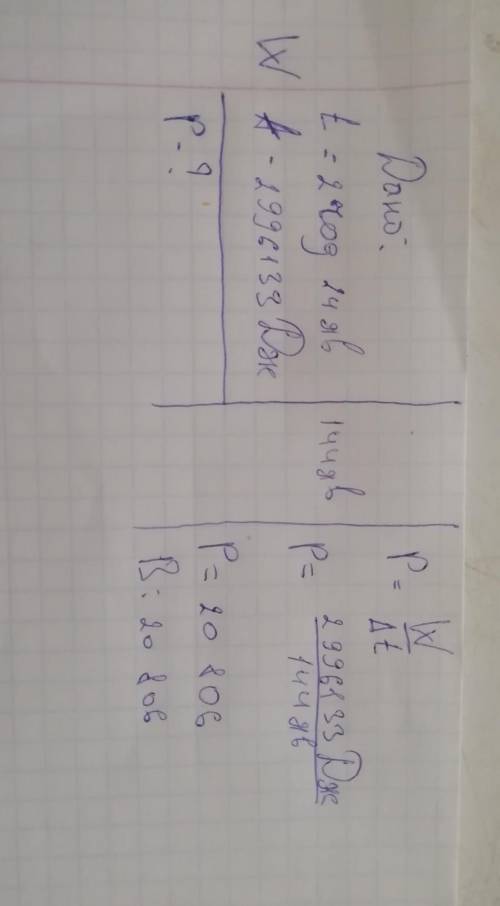 Дано:
t = 2 год 24 хв
W A - 2996133 Дж
P - ?
144 хв
P = W / Δt
P = 2996133 Дж / 144 хв
P = 20 806
В: 20 806